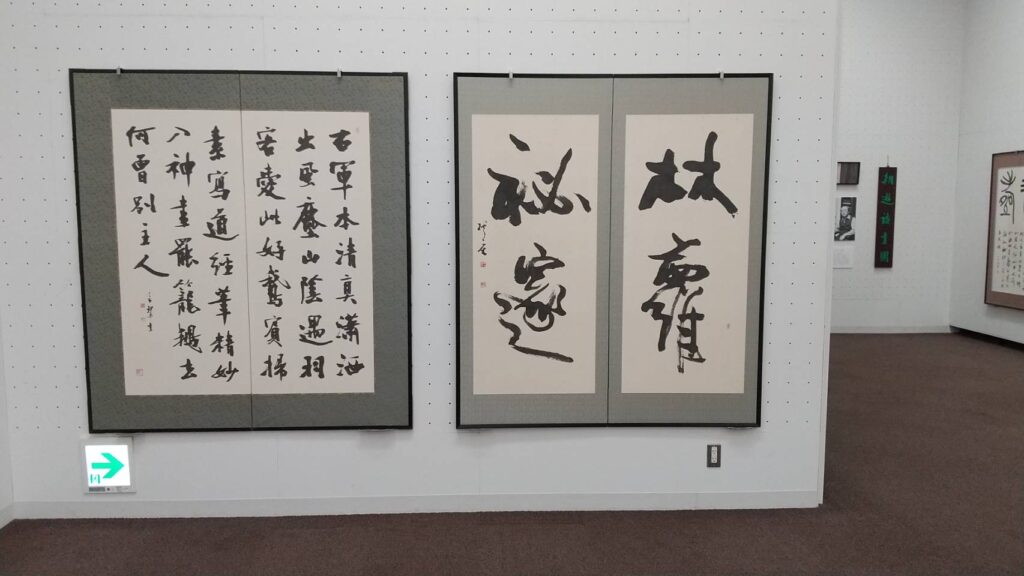 右軍本清真瀟洒
出風塵山陰遇羽
客愛此好鵞賓掃
素寫道經筆精妙
入神書罷籠鵞去
何曾別主人
林
秘邃